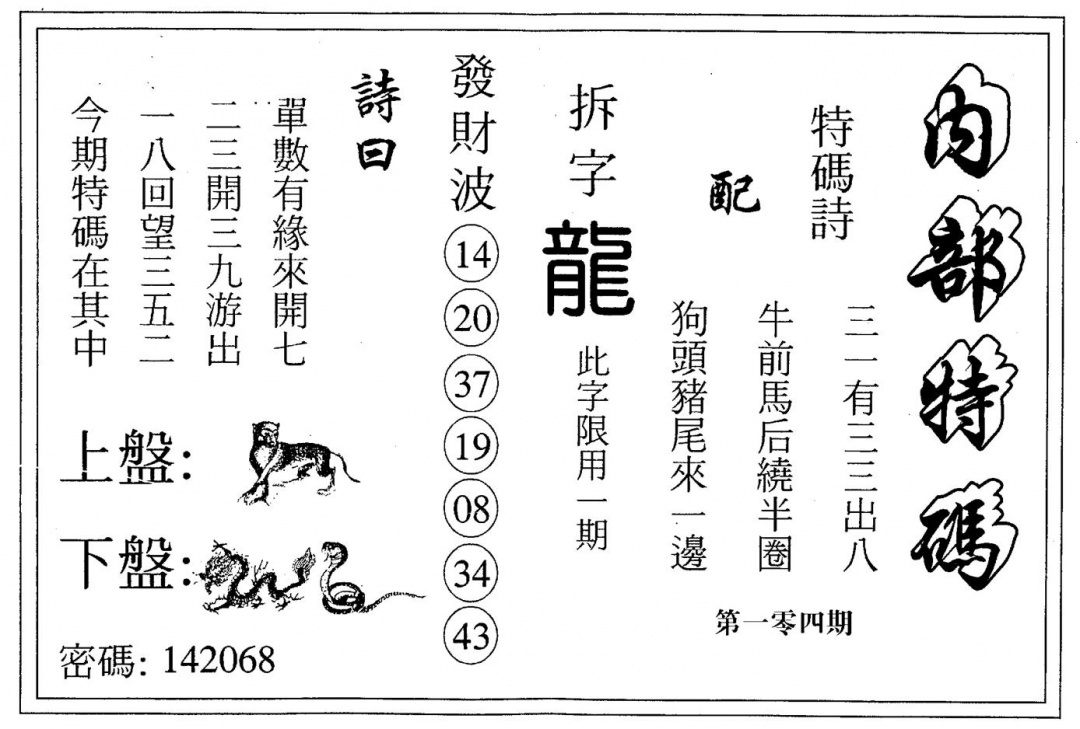 內部特碼
特碼詩
三一有三三出八
配
牛前馬后繞半圈
狗頭豬尾來一邊
第一零四期
拆字
龍
此字限用一期
發財波
14
20
37
19
08
34
43
詩曰
單數有緣來開七
二三開三九游出
一八回望三五二
今期特碼在其中
上盤:
下盤:
密碼: 142068